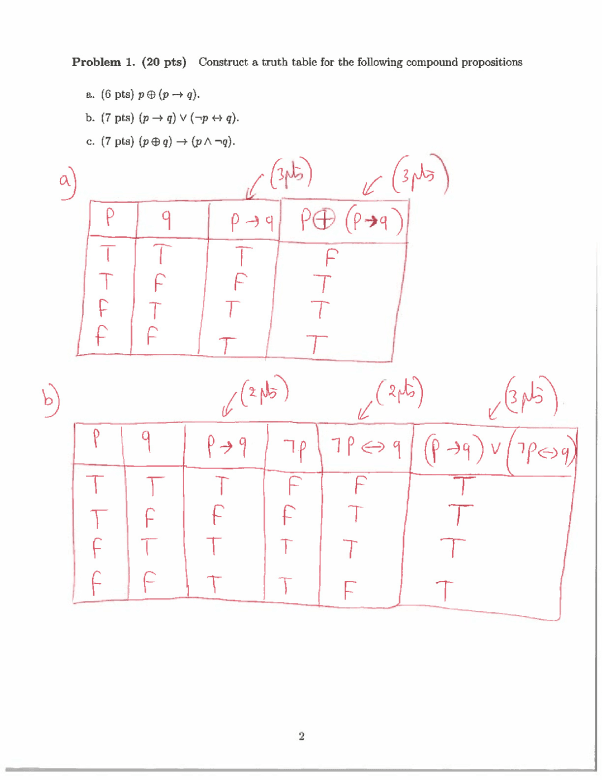 Problem 1. (20 pts) Construct a truth table for the following compound propositions
a. (6 pts) p ⊕ (p → q).
b. (7 pts) (p → q) ∨ (¬p ↔ q).
c. (7 pts) (p ⊕ q) → (p ∧ ¬q).
a) (3pts) (3pts)
P q P→q P⊕(P→q)
T T T F
T F F T
F T T T
F F T T
b) (2pts) (2pts) (3pts)
P q P→q ¬P ¬P⇔q (P→q) ∨ (¬P⇔q)
T T T F F T
T F F F T T
F T T T T T
F F T T F T
2